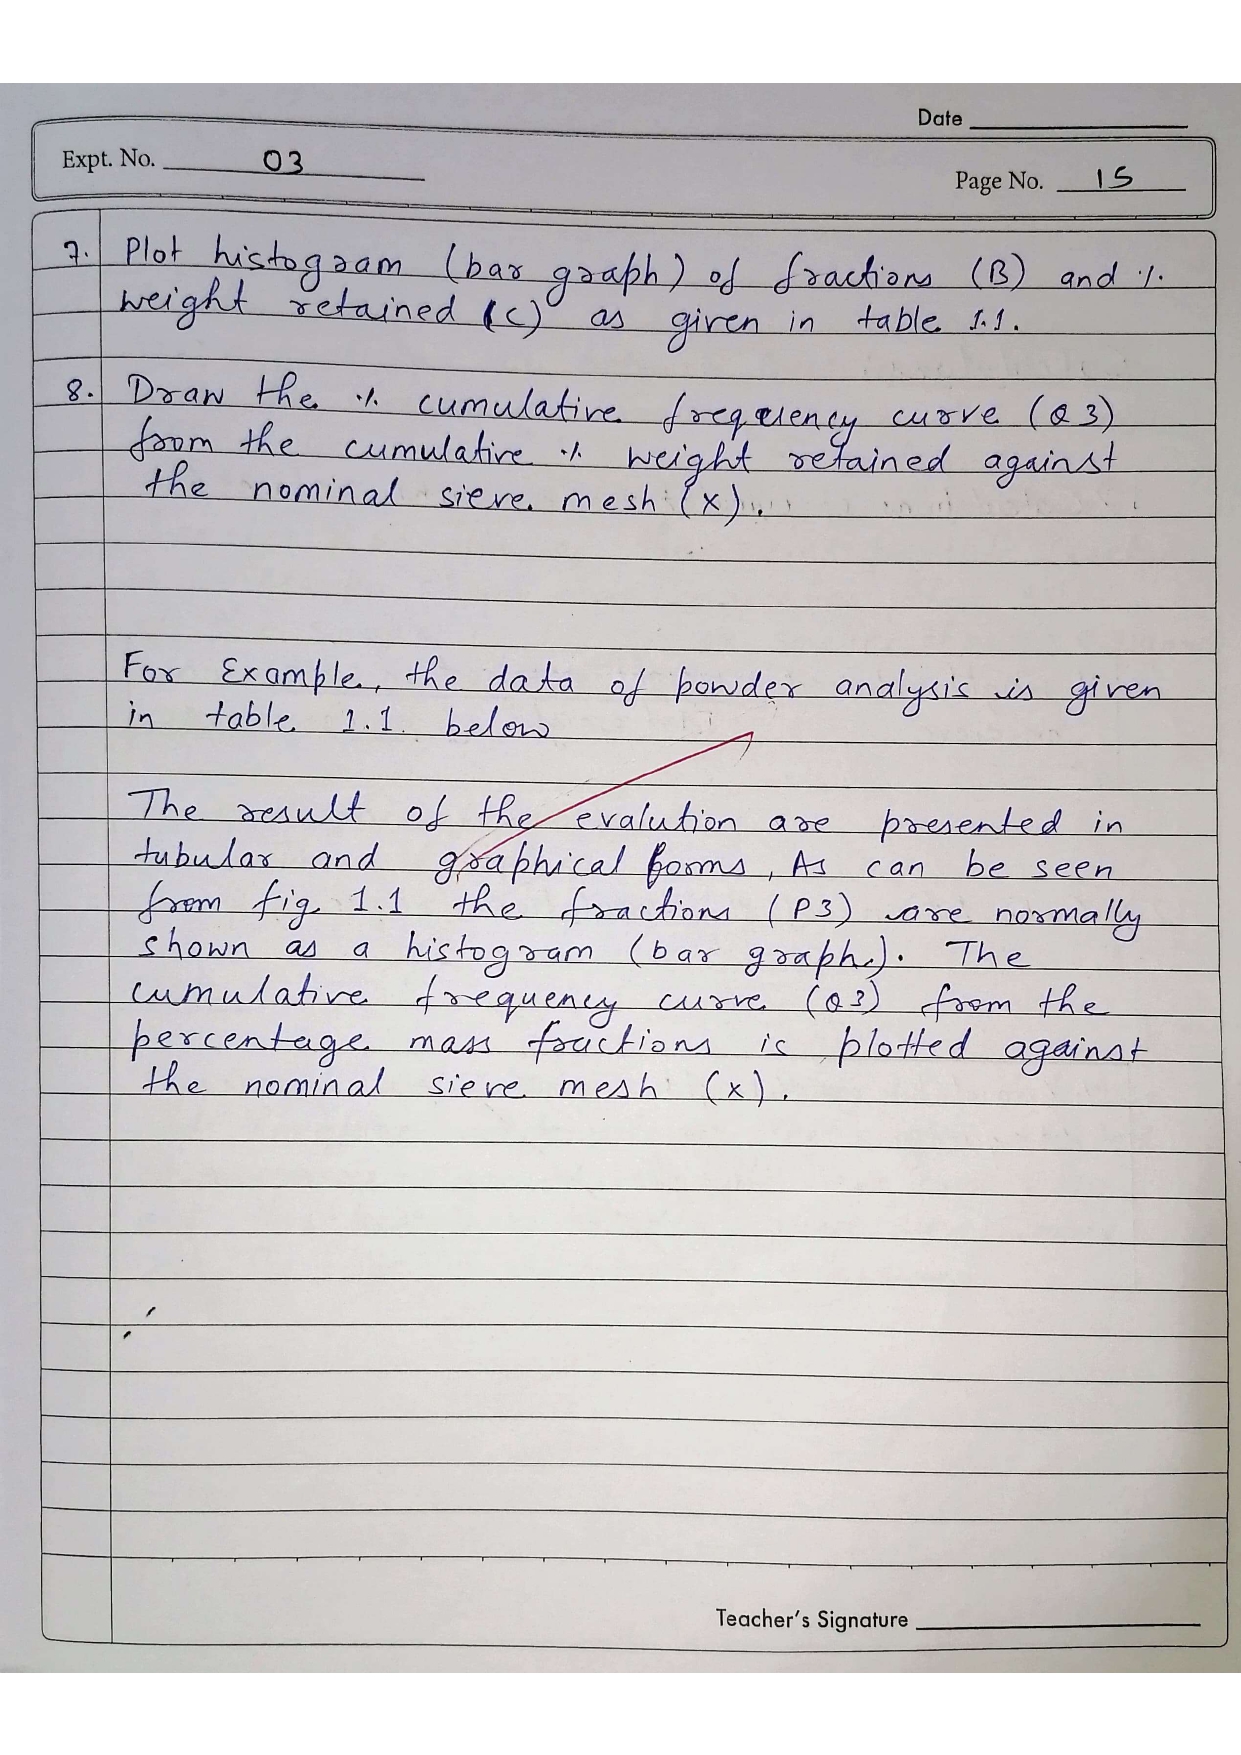 Date
Expt. No. 03
Page No. 15
7. Plot histogram (bar graph) of fractions (B) and %
weight retained (C) as given in table 1.1.
8. Draw the % cumulative frequency curve (Q3)
from the cumulative % weight retained against
the nominal sieve mesh (x).
For Example, the data of powder analysis is given
in table 1.1 below
The result of the evalution are presented in
tubular and graphical forms, As can be seen
from fig. 1.1 the fractions (P3) are normally
shown as a histogram (bar graph). The
cumulative frequency curve (Q3) from the
percentage mass fractions is plotted against
the nominal sieve mesh (x).
Teacher's Signature